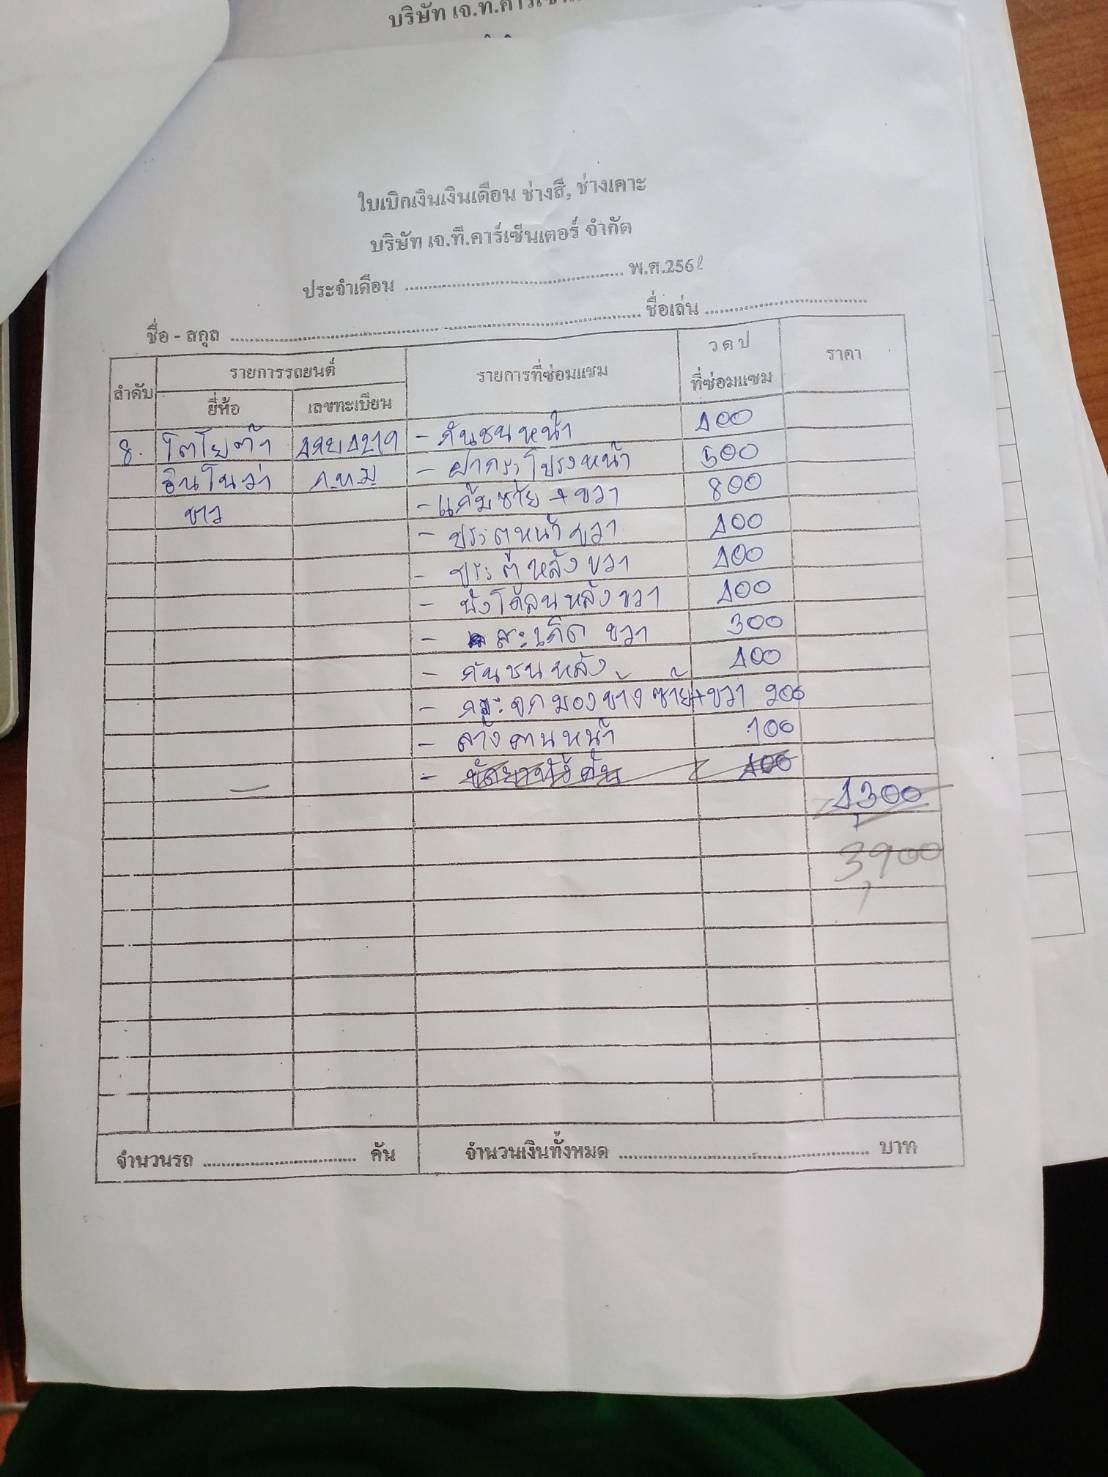 บริษัท เจ.ที.คาร์เซ็น
ใบเบิกเงินเงินเดือน ช่างสี, ช่างเคาะ
บริษัท เจ.ที.คาร์เซ็นเตอร์ จำกัด
ประจำเดือน ........................ พ.ศ.256
ชื่อ - สกุล ........................ ชื่อเล่น ........................
ลำดับ รายการรถยนต์ รายการที่ซ่อมแซม ว ด ป ที่ซ่อมแซม ราคา
ยี่ห้อ เลขทะเบียน
8. โตโยต้า - กันชนหน้า 400
อินโนว่า ก.ท.ม. - ฝากระโปรงหน้า 500
ขาว - แก้มซ้าย + ขวา 800
- ประตูหน้าขวา 400
- ประตูหลังขวา 400
- บังโคลนหลังขวา 400
- สะเก็ต ขวา 300
- กันชนหลัง 400
- กระจกมองข้างซ้าย+ขวา 200
- คานหน้า 100
- 400
4,300
3,900
จำนวนรถ ........................ คัน จำนวนเงินทั้งหมด ........................ บาท